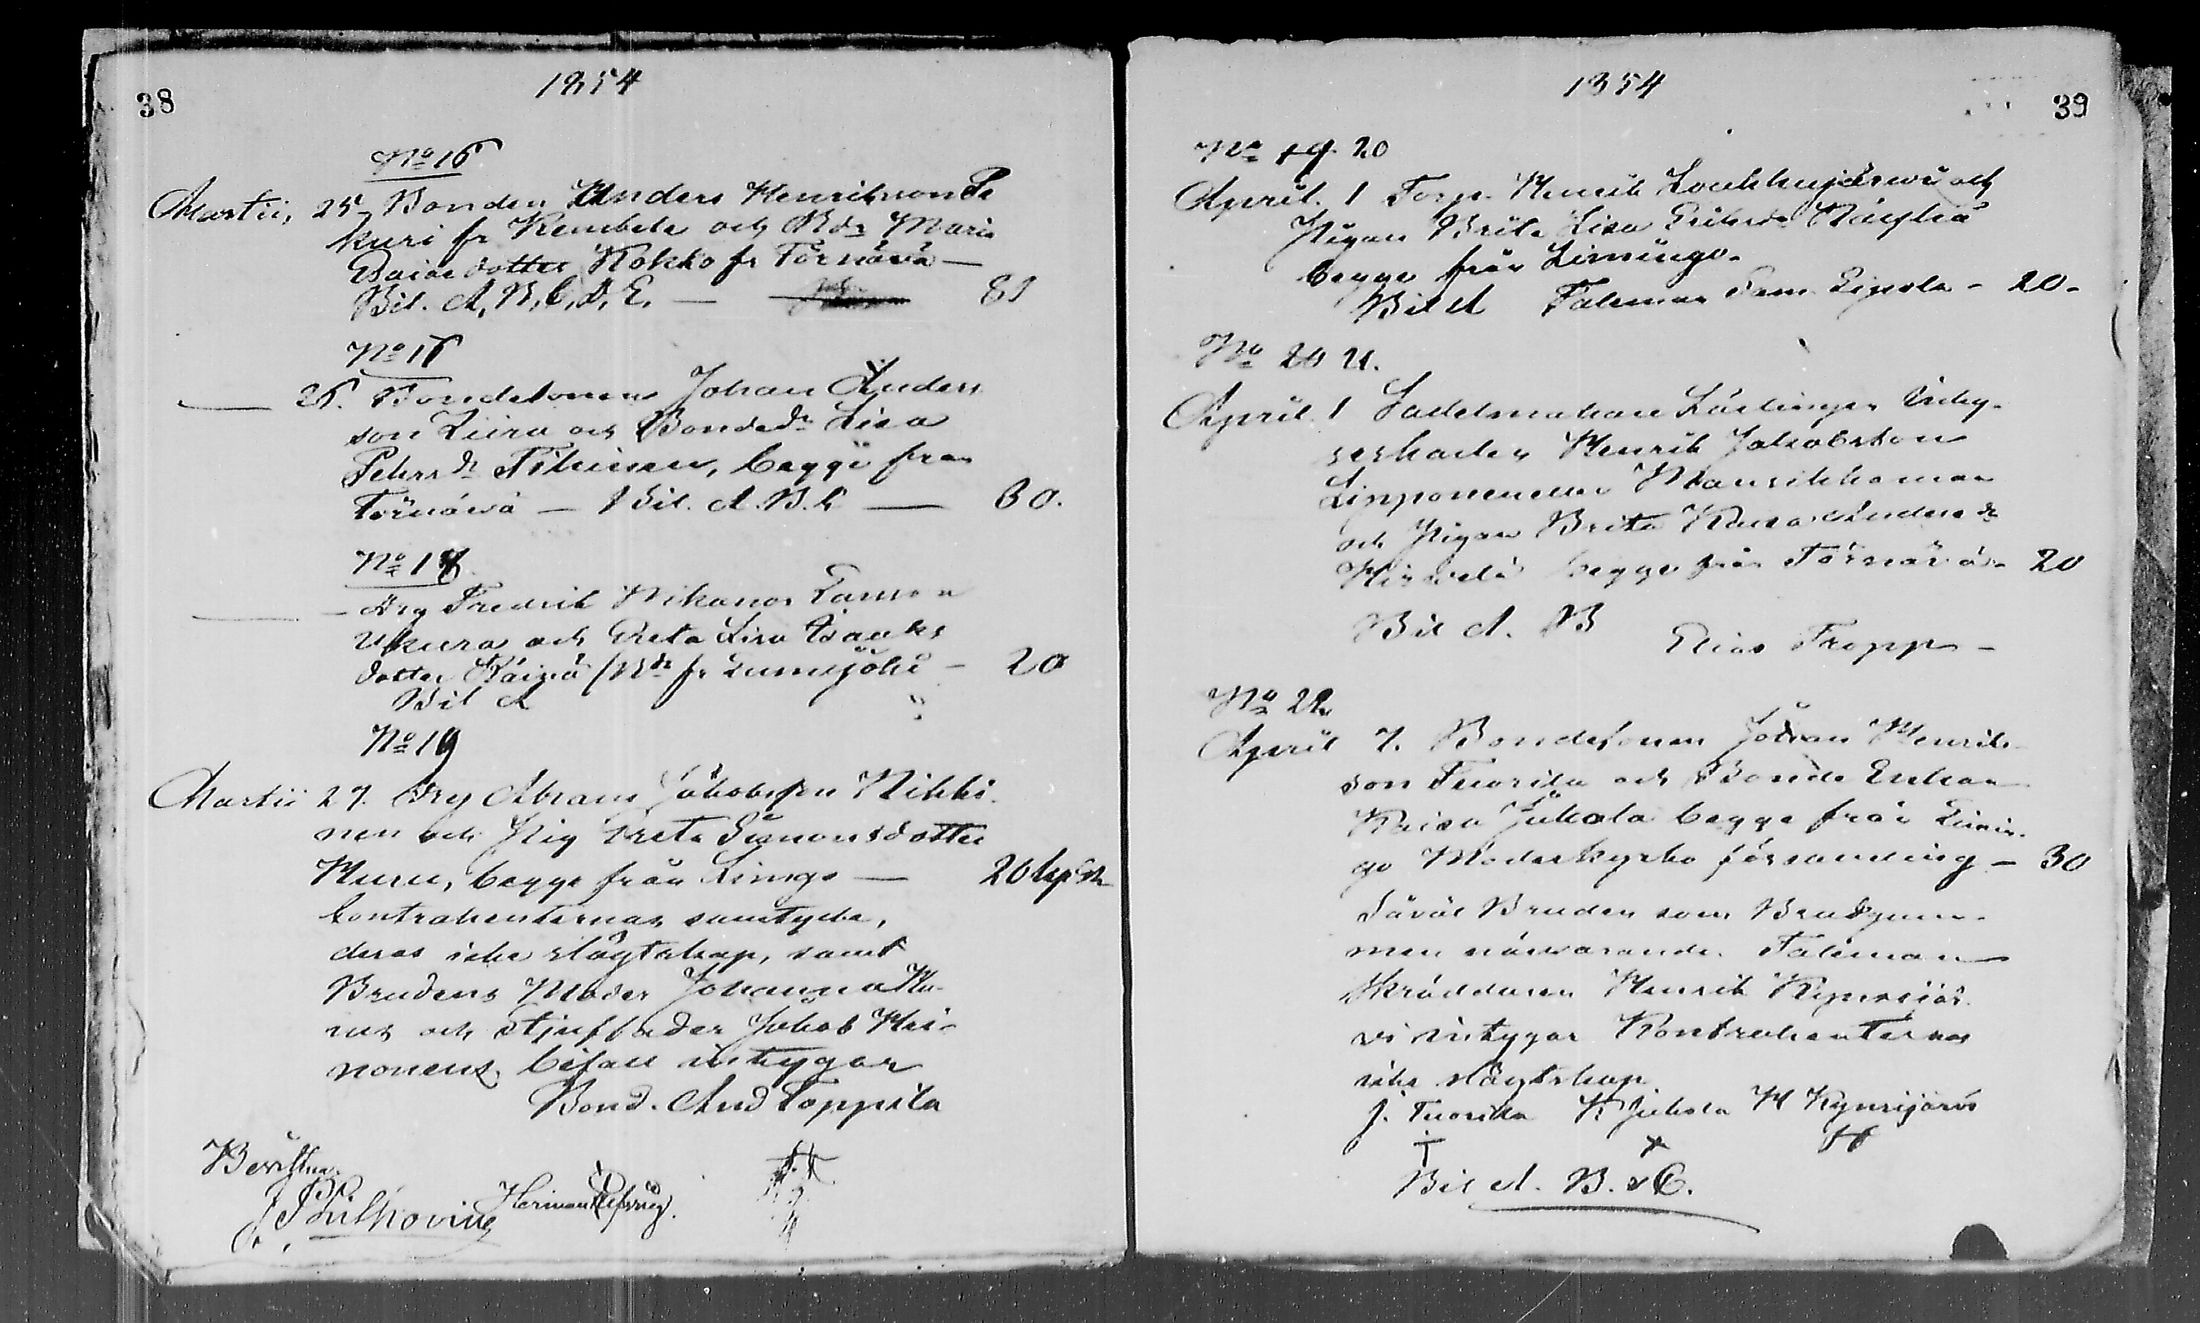 38
1854
No 16
Martii, 25 Bonden Anders Henriksson Pe
kuri fr Kembele och Bdr Maria
Caisadotter Kokko fr Törnävä —
Bil. A, B, C, D, E. — 81
No 17
— 26. Bondesonen Johan Anders
son Liira och Bondedr Lisa
Pehrsdr Tihinen, begge från
Törnäwä — Bil. A. B. C — 60.
No 18
— Drg Fredrik Nikanor
Ukura och Greta Lisa Isaaks
dotter Räinä Bdr fr Lumijoki — 20
Bil A
No 19
Martii 27. Drg Abram Jakobsson Nikki
nen och Pig Greta Simonsdotter
Huru, begge från Limgo — 20 kop Sr
Contrahenternas samtycke,
deras icke slägtskap, samt
Brudens Moder Johanna Hu-
rus och stjuffader Jakob Hei-
nonens bifall intygar
Bond. And Toppila
Herman
1854
39
No 19. 20
April. 1 Torp. Henrik Loukkujärwi och
Pigan Brita Lisa Eriksdr
begge från Limingo.
Bil A Talman Sam. Sipola — 20.
No 20 21.
April. 1 Sadelmakare Lärlingen
Henrik Jakobsson
Limponen eller Mansikkamaa
och Pigan Brita Kaisa Andersdr
Hirvelä begge från Törnävä — 20
Bil A. B
Elias Fropp —
No 22
April 7. Bondesonen Johan Henrik
son Tuorila och Bonde Enkan
Kaisa Jukola begge från Limin-
go Moderkyrko församling — 30
Såväl Bruden som Brudgum-
men närvarande. Talman
Skräddaren Henrik Kynsijär
vi intygar Kontrahenternas
icke slägtskap.
J. Tuorila K Jukola H Kynsijärvi
Bil A. B. & C.